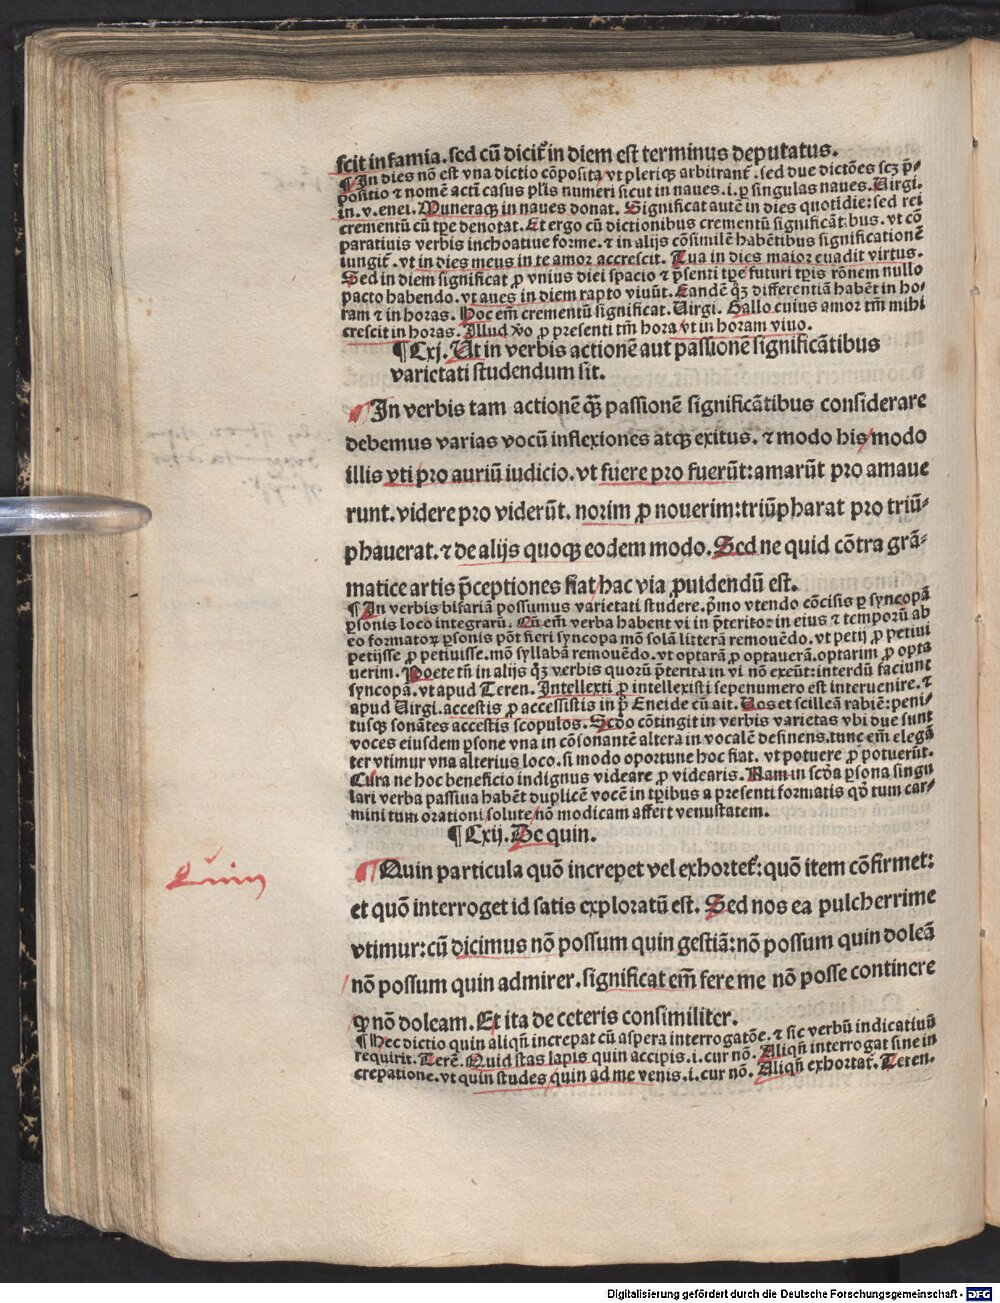 scit infamia. sed cū dicit̄ in diem est terminus deputatus.
¶ In dies nō est vna dictio cōposita vt pleriqꝫ arbitrant̄. sed due dictōes scꝫ p̄-
positio ⁊ nomē acti casus pl̄is numeri sicut in naues .i. ꝑ singulas naues. Uirgi.
in .v. enei. Muneraqꝫ in naues donat. Significat autē in dies quotidie: sed rei
crementū cū tp̄e denotat. Et ergo cū dictionibus crementū significātibus. vt cō
paratiuis verbis inchoatiue forme. ⁊ in alijs cōsimilē habētibus significationē
iungit̄. vt in dies meus in te amor accrescit. Tua in dies maior euadit virtus.
Sed in diem significat ꝓ vnius diei spacio ⁊ p̄senti tp̄e futuri tp̄is rōnem nullo
pacto habendo. vt aues in diem rapto viuūt. Eandē qꝫ differentiā habēt in ho-
ram ⁊ in horas. Hoc em̄ crementū significat. Uirgi. Gallo cuius amor tm̄ mihi
crescit in horas. Illud v̄o ꝓ presenti tm̄ hora vt in horam viuo.
¶ Cxj. Ut in verbis actionē aut passionē significātibus
varietati studendum sit.
¶ In verbis tam actionē qꝫ̄ passionē significātibus considerare
debemus varias vocū inflexiones atqꝫ exitus. ⁊ modo his modo
illis vti pro auriū iudicio. vt fuere pro fuerūt: amarūt pro amaue
runt. videre pro viderūt. norim ꝓ nouerim: triūpharat pro triū-
phauerat. ⁊ de alijs quoqꝫ eodem modo. Sed ne quid cōtra grā-
matice artis p̄ceptiones fiat hac via ꝓuidendū est.
¶ In verbis bifariā possumus varietati studere. p̄mo vtendo cōcisis ꝑ syncopā
ꝑsonis loco integrarū. Cū em̄ verba habent vi in p̄terito: in eius ⁊ temporū ab
eo formatoꝝ ꝑsonis pōt fieri syncopa mō solā litterā remouēdo. vt petij ꝓ petiui
petijsse ꝓ petiuisse. mō syllabā remouēdo. vt optarā ꝓ optauerā. optarim ꝓ opta
uerim. Poete tn̄ in alijs qꝫ verbis quorū p̄terita in vi nō exeūt: interdū faciunt
syncopā. vt apud Teren. Intellexti ꝓ intellexisti sepenumero est interuenire. ⁊
apud Uirgi. accestis ꝓ accessistis in p̄ Eneide cū ait. Uos et scilleā rabiē: peni-
tusqꝫ sonātes accestis scopulos. Scd̄o cōtingit in verbis varietas vbi due sunt
voces eiusdem ꝑsone vna in cōsonantē altera in vocalē desinens. tunc em̄ elegā
ter vtimur vna alterius loco. si modo oportune hoc fiat. vt potuere ꝓ potuerūt.
Cura ne hoc beneficio indignus videare ꝓ videaris. Nam in scd̄a ꝑsona singu
lari verba passiua habēt duplicē vocē in tp̄ibus a presenti formatis qd̄ tum car-
mini tum orationi solute nō modicam affert venustatem.
¶ Cxij. De quin.
¶ Quin particula quō increpet vel exhortet̄: quō item cōfirmet:
et quō interroget id satis exploratū est. Sed nos ea pulcherrime
vtimur: cū dicimus nō possum quin gestiā: nō possum quin doleā
nō possum quin admirer. significat em̄ fere me nō posse continere
qn nō doleam. Et ita de ceteris consimiliter.
¶ Hec dictio quin aliqn̄ increpat cū aspera interrogatōe. ⁊ sic verbū indicatiuū
requirit. Terē. Quid stas lapis quin accipis .i. cur nō. Aliqn̄ interrogat sine in
crepatione. vt quin studes quin ad me venis .i. cur nō. Aliqn̄ exhortat̄. Teren.
Quin
Digitalisierung gefördert durch die Deutsche Forschungsgemeinschaft - DFG